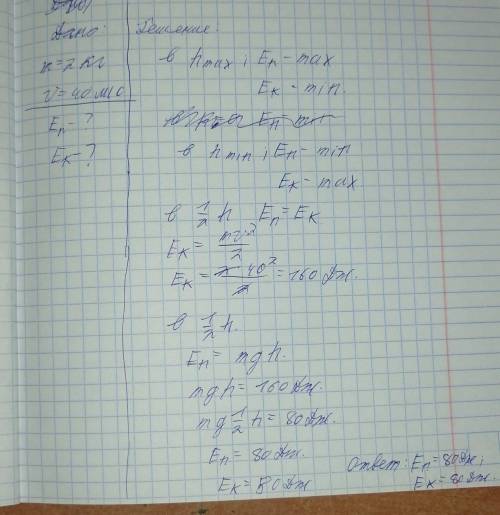 Дано:
Решение:
m=2 кг
v=40 м/с
Eп-?
Eк-?
в hmax; Eп - max
Eк - min.
в hmin; Eп - min
Eк = max
в 1/2 h Eп = Eк
Eк = mv²/2
Eк = 2·40²/2 = 160 Дж.
в 1/2 h.
Eп = mgh.
mgh = 160 Дж.
mg 1/2 h = 80 Дж.
Eп = 80 Дж.
Eк = 80 Дж
Ответ: Eп = 80 Дж;
Eк = 80 Дж.